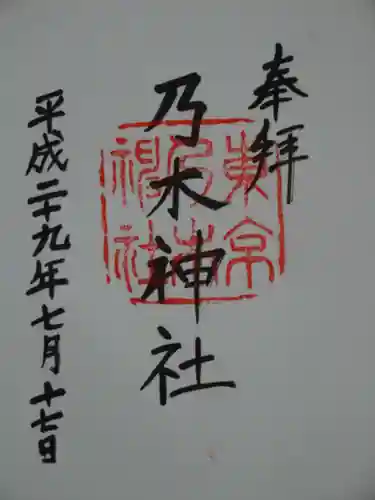 奉拝
乃木神社
平成二十九年七月十七日
東京
乃木
神社